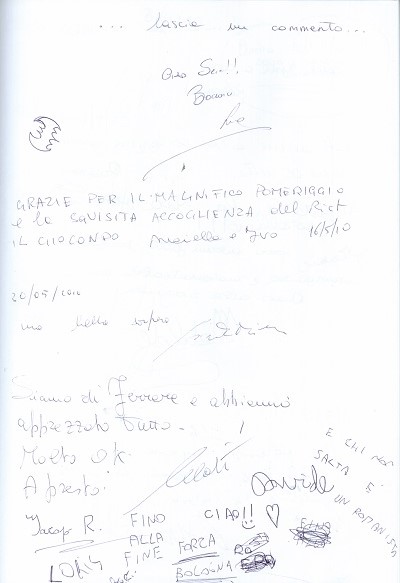 ... lascia un commento...
Ciao
GRAZIE PER IL MAGNIFICO POMERIGGIO
e la SQUISITA ACCOGLIENZA del Rist
IL GIOCONDO Mariella e Ivo 16/5/10
20/05/2010
una bella
Siamo di Ferrara e abbiamo
apprezzato tutto.
Molto ok.
A presto!
E CHI NON
SALTA È
UN ROMANISTA
Davide
Jacop R.
FINO
ALLA
FINE
CIAO!!
FORZA
BOLOGNA
LORIS